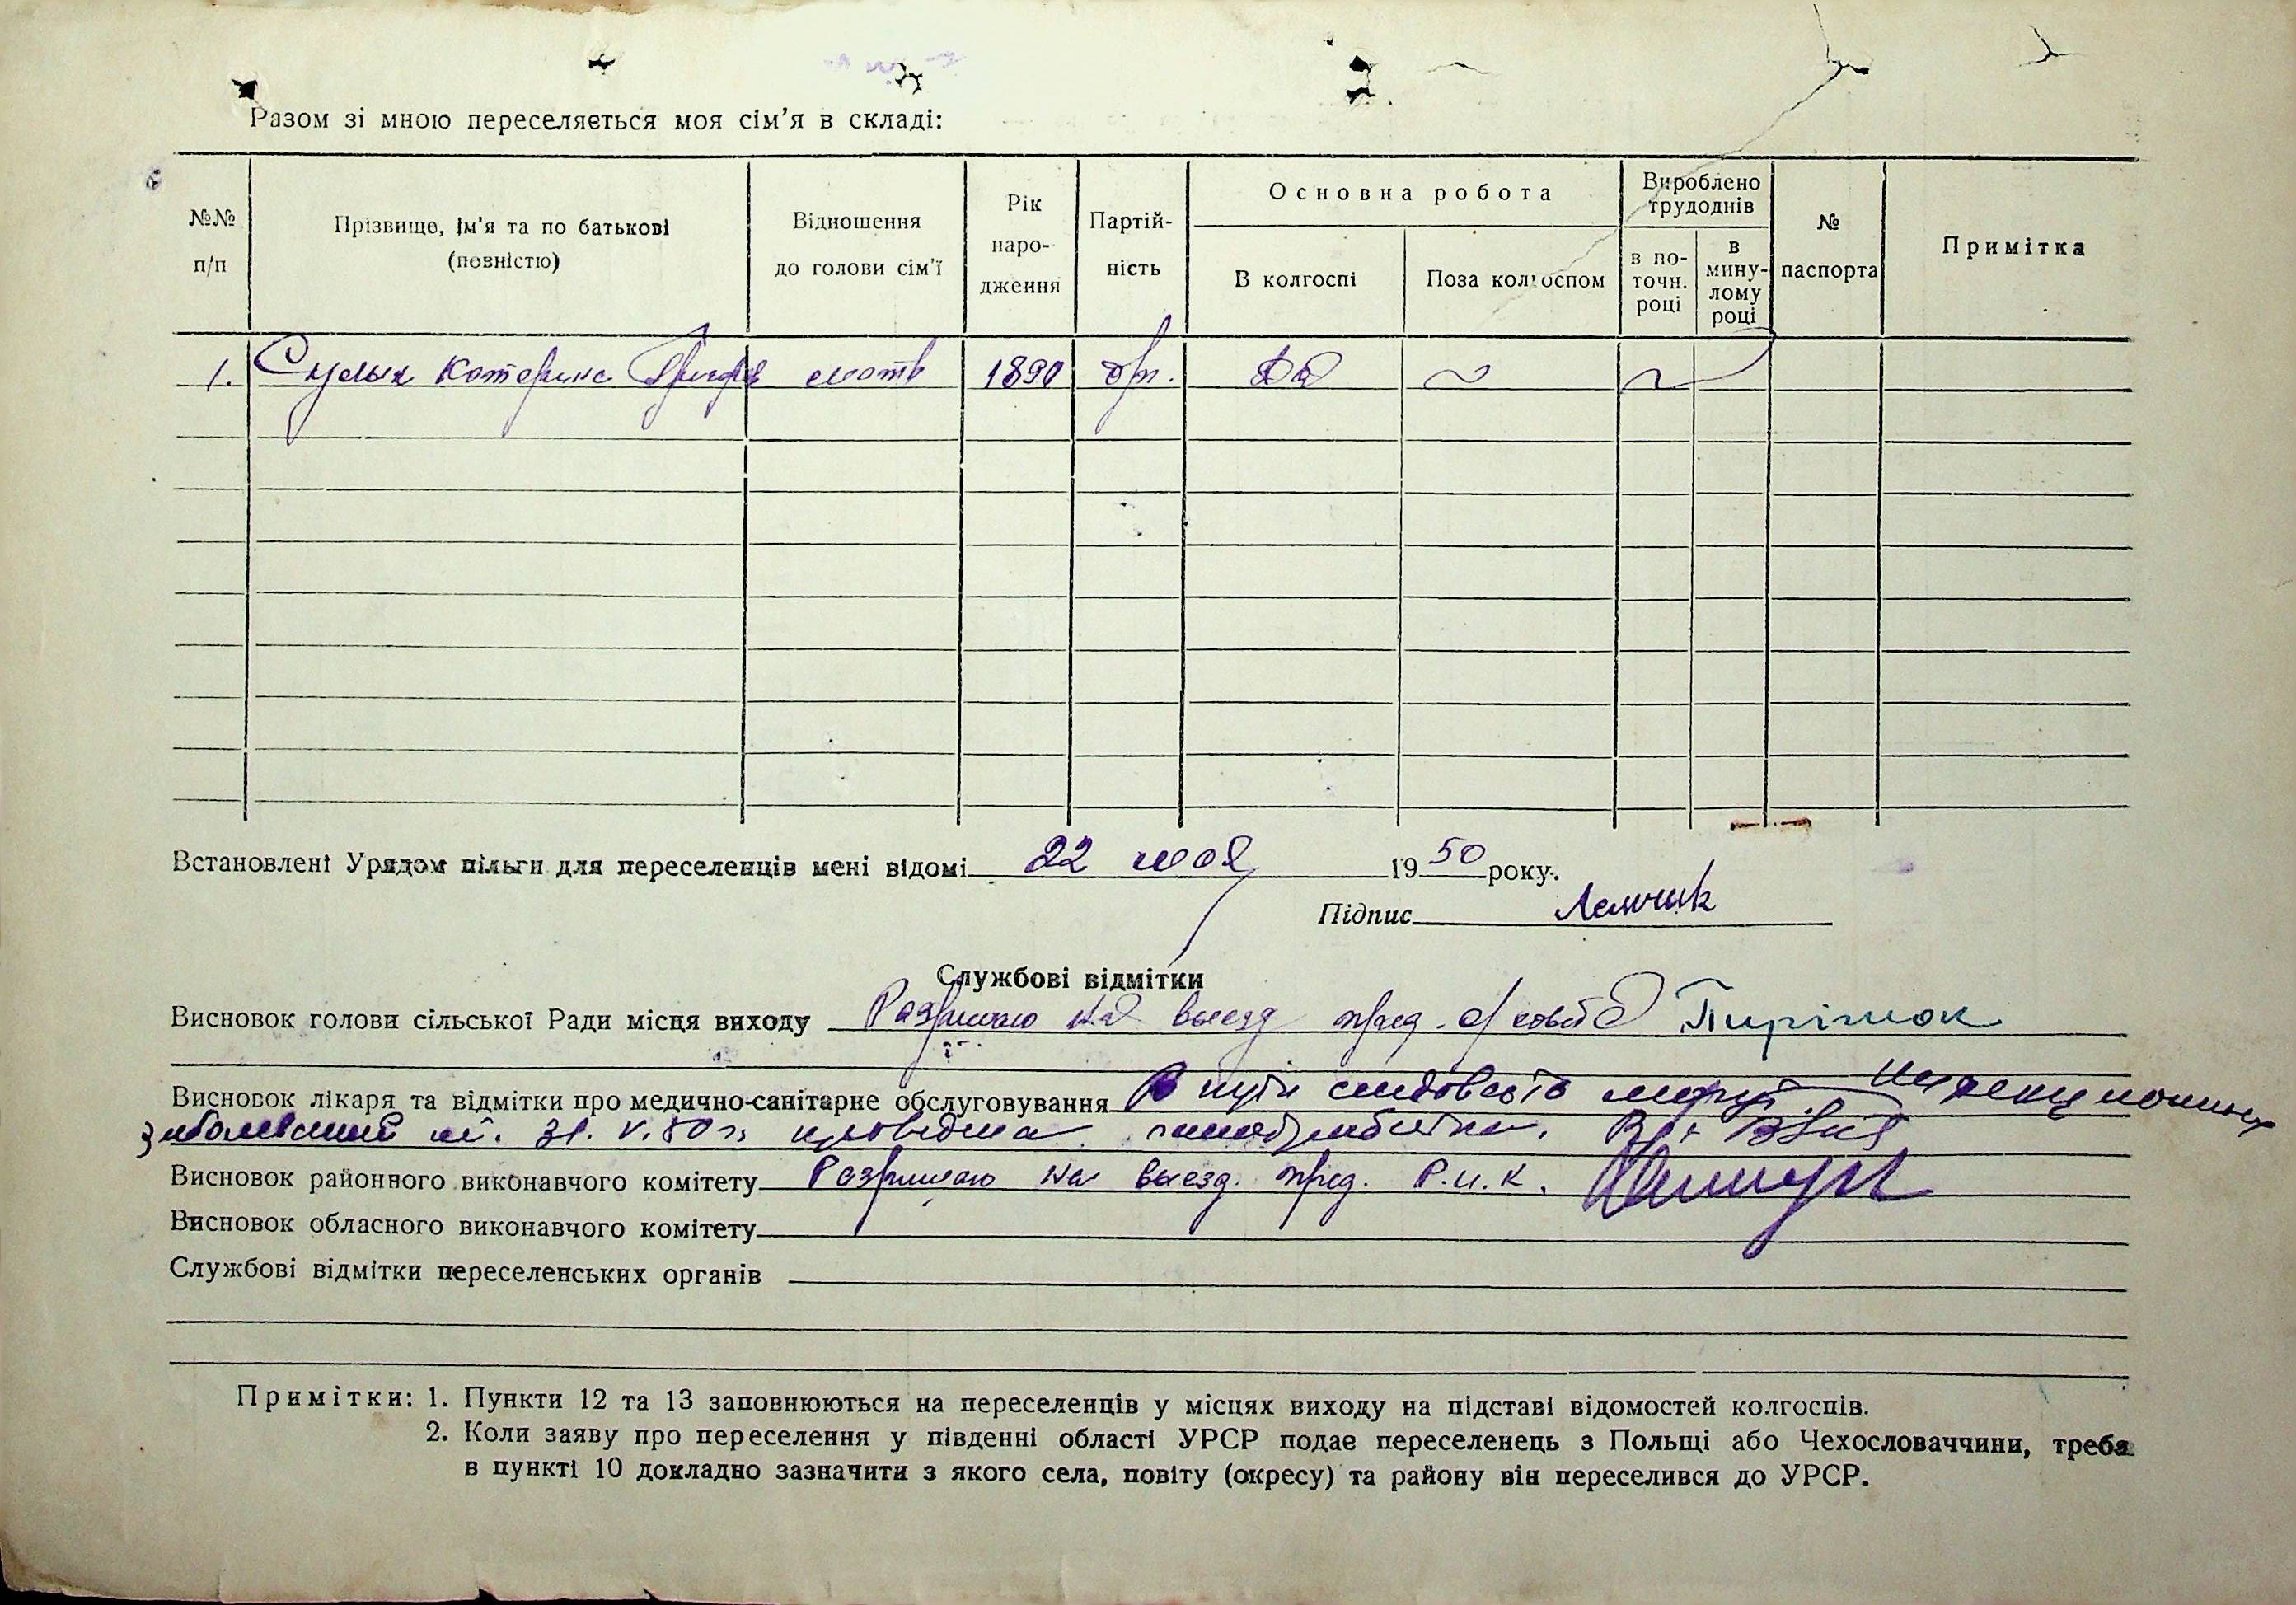 Разом зі мною переселяється моя сім'я в складі:
№№ п/п
Прізвище, ім'я та по батькові (повністю)
Відношення до голови сім'ї
Рік народження
Партійність
Основна робота
В колгоспі
Поза колгоспом
Вироблено трудоднів
в поточн. році
в минулому році
№ паспорта
Примітка
1. Катерина мать 1890 бп.
Встановлені Урядом пільги для переселенців мені відомі 22 мая 1950 року.
Підпис
Службові відмітки
Висновок голови сільської Ради місця виходу Разришаю на выезд пред. с/совета
Висновок лікаря та відмітки про медично-санітарне обслуговування В пути следовать может Инфекционных
заболеваний нет. 31.V.50 г. проведена санобработка.
Висновок районного виконавчого комітету Разришаю на выезд. пред. Р.и.к.
Висновок обласного виконавчого комітету
Службові відмітки переселенських органів
Примітки: 1. Пункти 12 та 13 заповнюються на переселенців у місцях виходу на підставі відомостей колгоспів.
2. Коли заяву про переселення у південні області УРСР подає переселенець з Польщі або Чехословаччини, треба
в пункті 10 докладно зазначити з якого села, повіту (окресу) та району він переселився до УРСР.